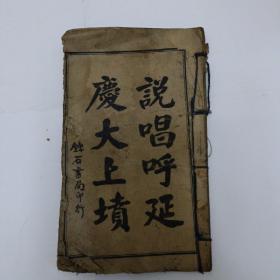 說唱呼延
慶大上墳
鍊石書局印行